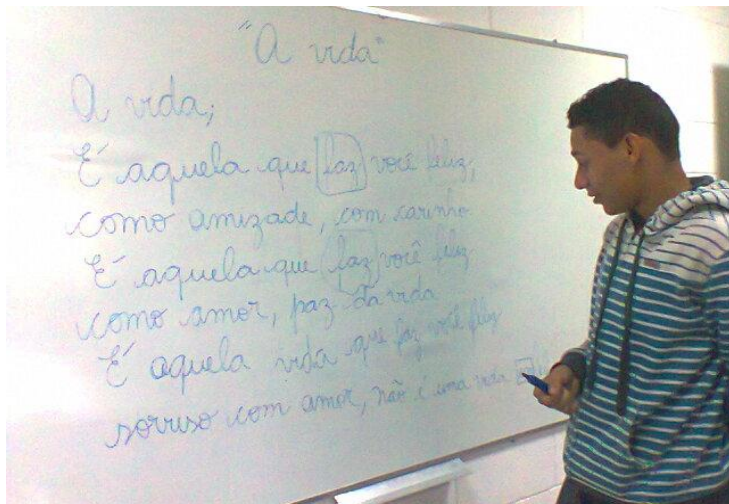 "A vida"
A vida;
É aquela que faz você feliz,
como amizade, com carinho
É aquela que faz você feliz
como amor, paz da vida
É aquela vida que faz você feliz
sorriso com amor, não é uma vida